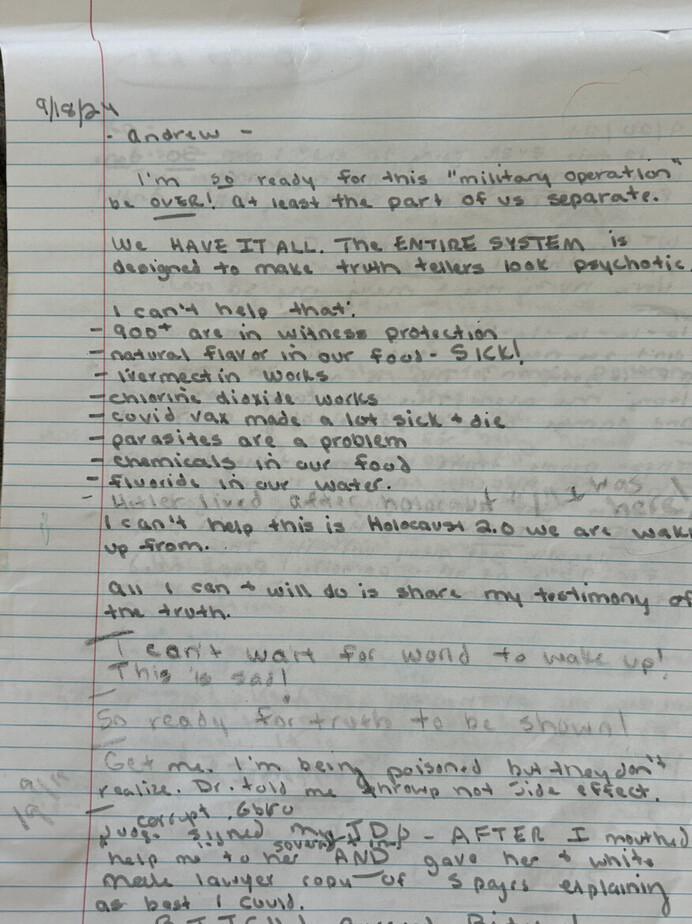 9/18/24
- andrew -
I'm so ready for this "military operation"
be OVER! at least the part of us separate.
WE HAVE IT ALL. THE ENTIRE SYSTEM is
designed to make truth tellers look psychotic.
I can't help that:
- 900+ are in witness protection
- natural flavor in our food - SICK!
- Ivermectin works
- chlorine dioxide works
- covid vax made a lot sick + die
- parasites are a problem
- chemicals in our food
- fluoride in our water.
- Hitler lived after holocaust + I was here!
I can't help this is Holocaust 2.0 we are
up from.
all I can + will do is share my testimony of
the truth.
I can't wait for world to wake up!
This is sad!
So ready for truth to be shown!
Get me. I'm being poisoned but they don't
realize. Dr. told me throwp not side effect.
corrupt
Judge signed my JDP - AFTER I mouthed
help me to her AND gave her + white
male lawyer copy of 5 pages explaining
as best I could.